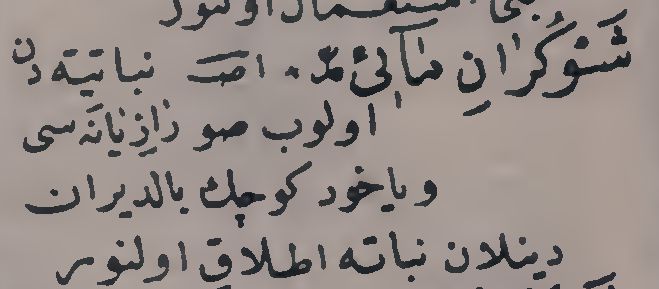 استعمال اولنور
شَوْكَرَانِ مَآئِى مد. اصـ نباتیه دن
اولوب صو رازیانه سی
ویاخود كوچك بالدیران
دینلان نباته اطلاق اولنور